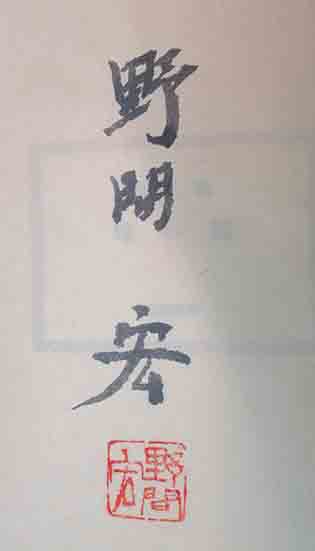 野間 宏
野間宏